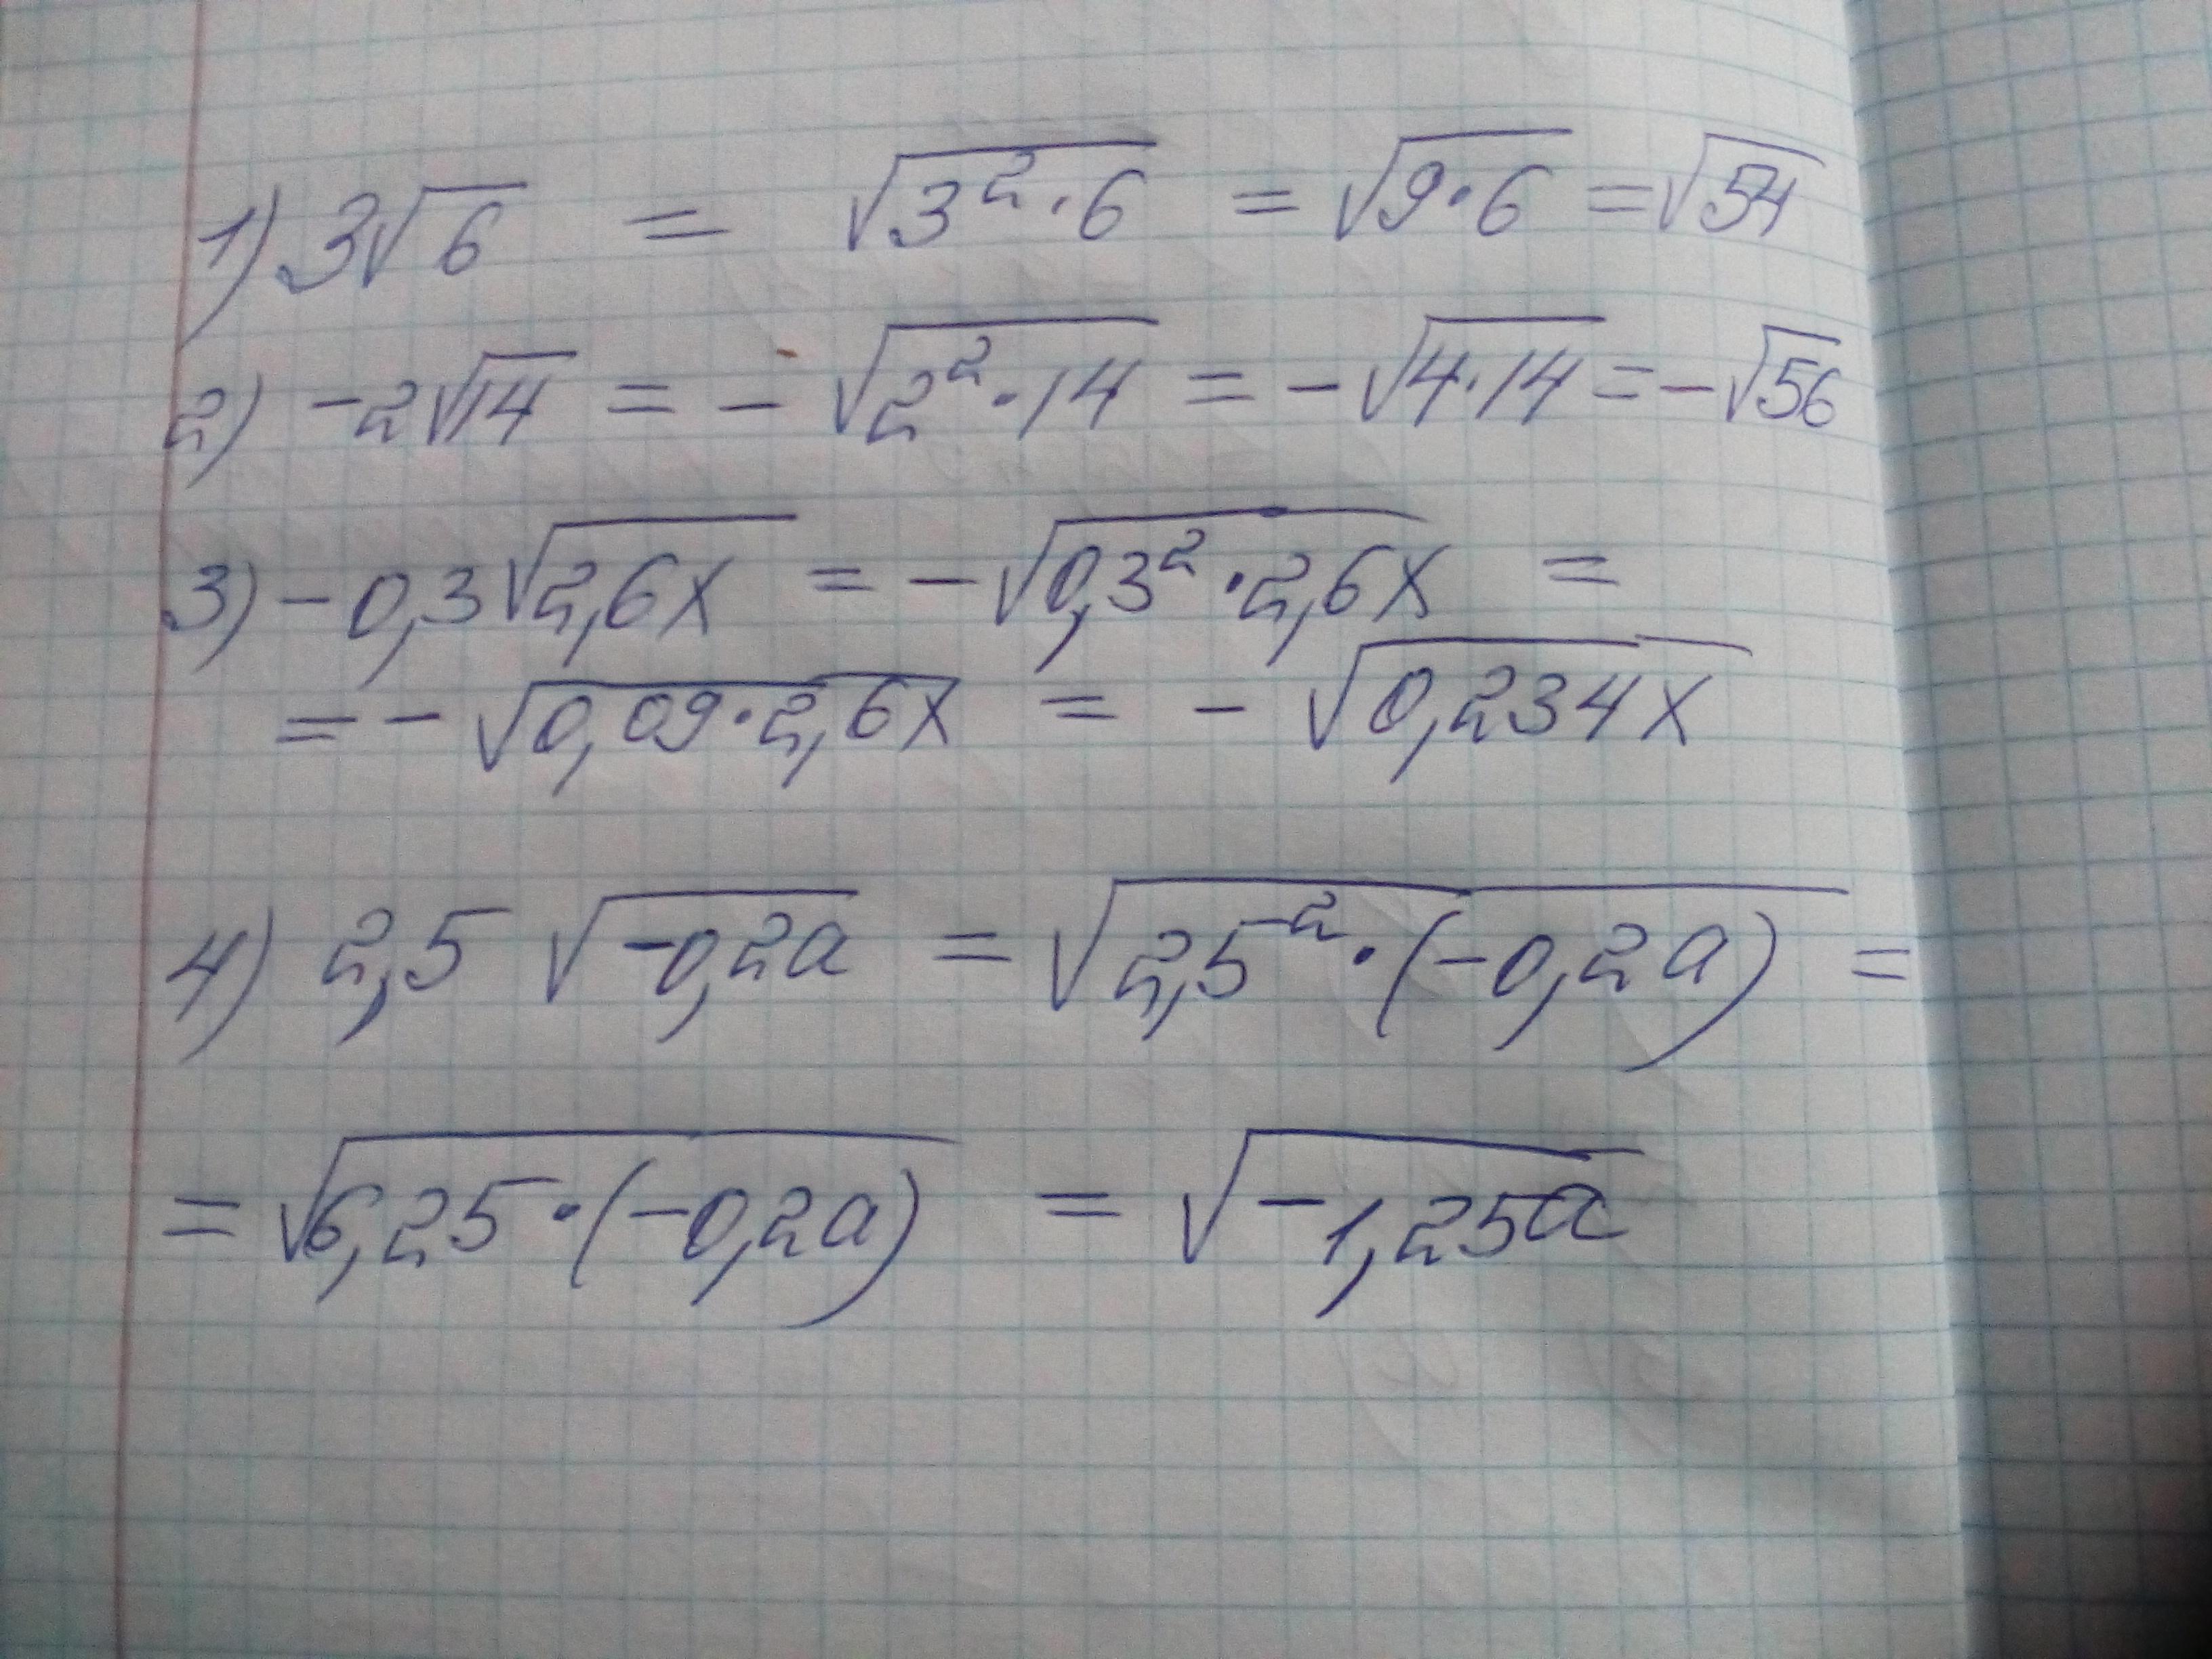 1) 3√6 = √3²·6 = √9·6 = √54
2) -2√14 = -√2²·14 = -√4·14 = -√56
3) -0,3√2,6x = -√0,3²·2,6x =
= -√0,09·2,6x = -√0,234x
4) 2,5 √-0,2a = √2,5²·(-0,2a) =
= √6,25·(-0,2a) = √-1,25a